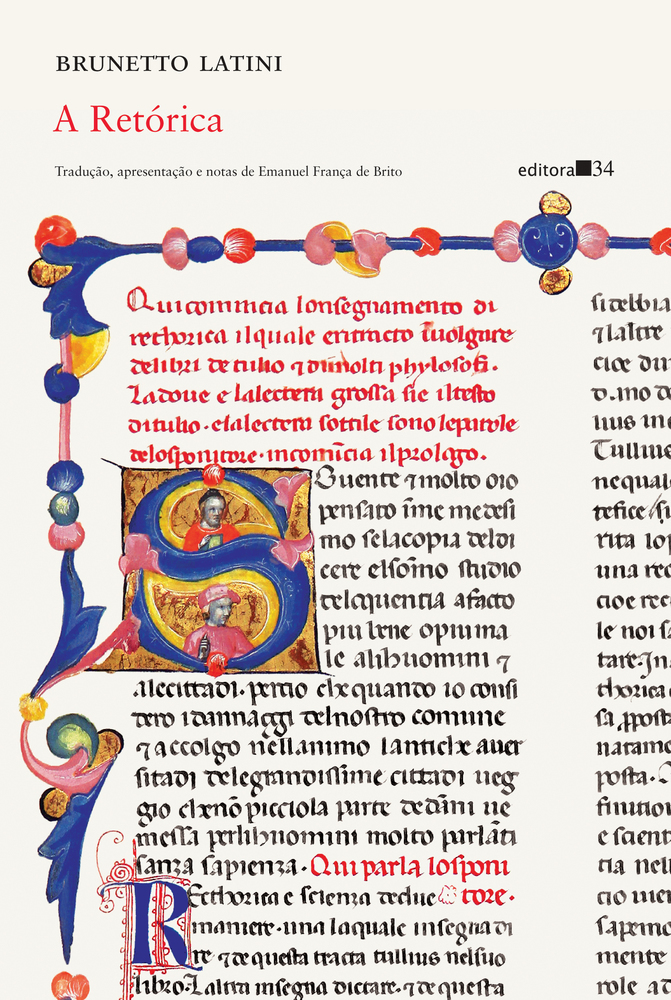 BRUNETTO LATINI
A Retórica
Tradução, apresentação e notas de Emanuel França de Brito
editora 34
Qui comincia lonsegnamento di
recthorica ilquale
delibri de tulio molti phylosofi.
Ladoue e lalectera grossa sie iltesto
ditulio. elalectera sottile sono leparole
delosponitore. incomīcia ilprolago.
Souente molto oio
pensato īme medesi
mo selacopia deldi
cere elsōmo studio
deloquentia a facto
piu bene opiu ma
le alihuomini
alecittadi. percio che quando io consi
dero idannaggi delnostro comune
accolgo nellanimo lantiche auer
sitadi delegrandissime cittadi ueg
gio chenō picciola parte dedāni ue
messa perlihuomini molto parlāti
sanza sapienza. Qui parla losponi
Recthorica e scienza dedue tore.
maniere. una laquale insegna di
re questa tracta tullius nelsuo
libro. Laltra insegna dictare. questa
si debbia
laltre
cioe
uius
Tullius
ne quale
tefice
rita
una
cioe
le noi
tare. In
thorica
sa
naram
posta.
finition
e scient
tia nell
cio
sapem
mente
role